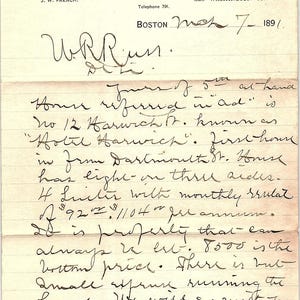 J. W. FRENCH.
Telephone 791.
BOSTON Mch 7 - 1891.
W R Russ.
Dr Sir
Yours of 5th at hand
House referred in "ad" is
No 12 Harwich St. known as
"Hotel Harwich". First house
in from Dartmouth St. House
has light on three sides.
4 Suites with monthly rental
of $92 00 $1104 00 per annum.
It is property that can
always be let. 8500 is the
bottom price. There is but
small expense running the